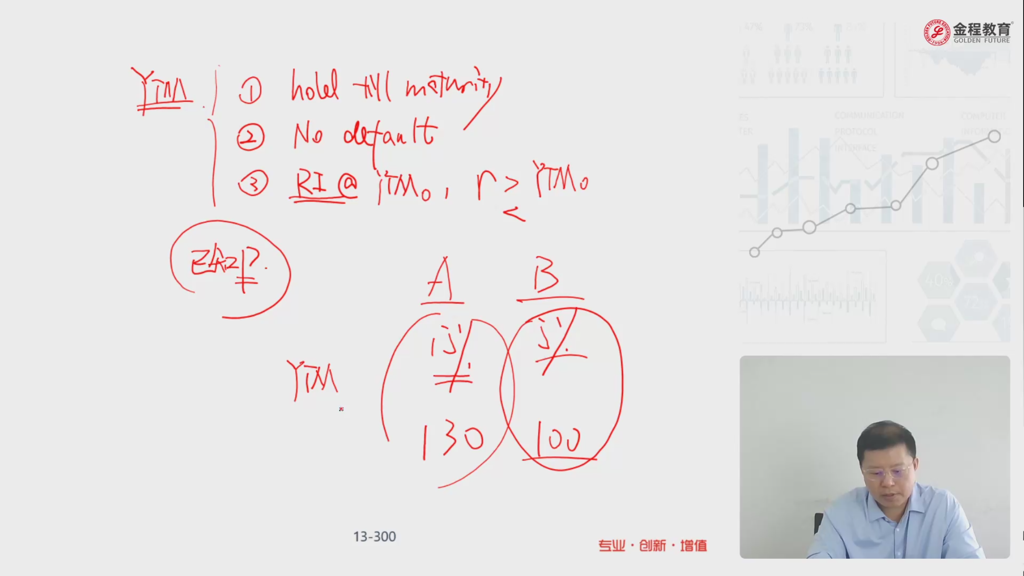 金程教育
GOLDEN FUTURE
YTM
① hold till maturity
② No default
③ RI @ YTM₀, r > YTM₀
<
A B
15% 5%
YTM
130 100
13-300
专业·创新·增值